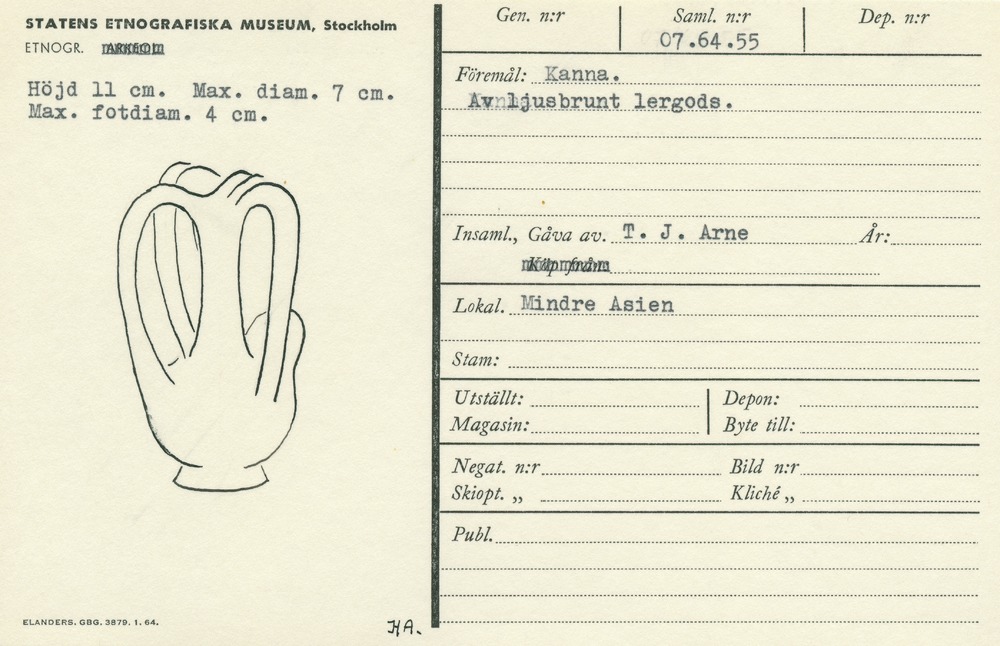 STATENS ETNOGRAFISKA MUSEUM, Stockholm
ETNOGR. ARKEOL.
Höjd 11 cm. Max. diam. 7 cm.
Max. fotdiam. 4 cm.
ELANDERS. GBG. 3879. 1. 64.
HA.
Gen. n:r
Saml. n:r
07.64.55
Dep. n:r
Föremål: Kanna.
Av ljusbrunt lergods.
Insaml., Gåva av. T. J. Arne År:
Köp från
Lokal. Mindre Asien
Stam:
Utställt: Depon:
Magasin: Byte till:
Negat. n:r Bild n:r
Skiopt. „ Kliché „
Publ.